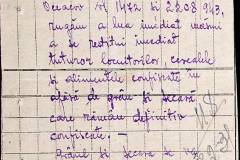 Deacov № 1472 si 2208 943,
rugăm a lua imediat măsuri
a se restitui imediat
tuturor locuitorilor, cerealele
si alimentele confiscate in
afară de grâu si secară
care rămân definitiv
confiscate. —
Grâul si secara se